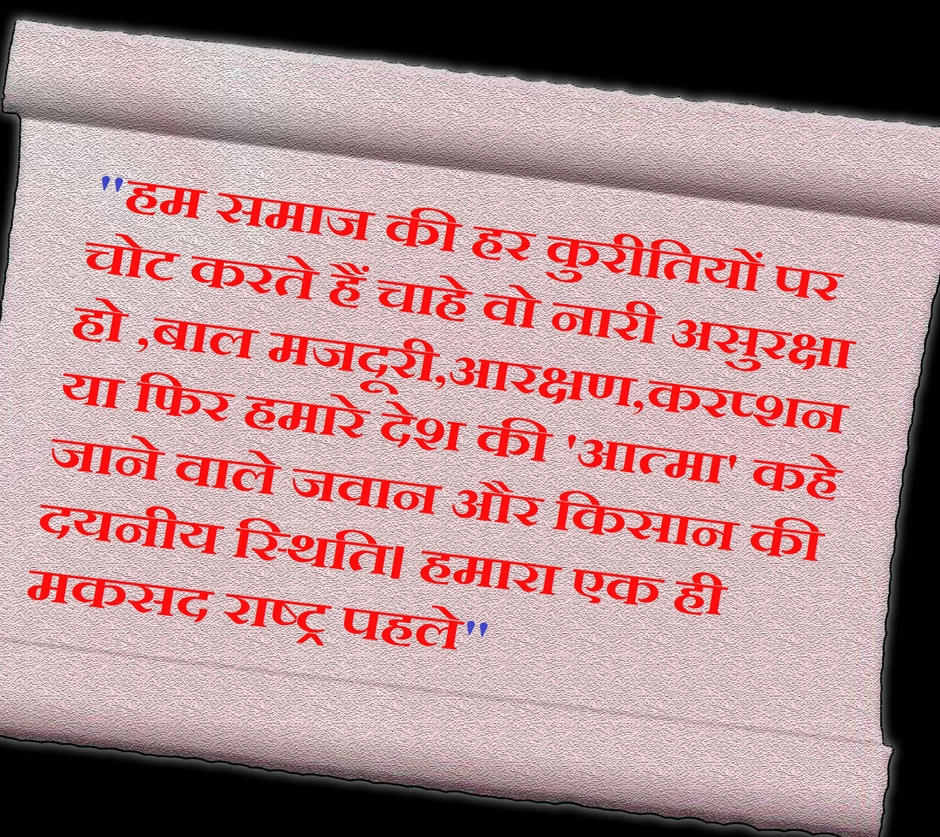 "हम समाज की हर कुरीतियों पर
चोट करते हैं चाहे वो नारी असुरक्षा
हो ,बाल मजदूरी,आरक्षण,करप्शन
या फिर हमारे देश की 'आत्मा' कहे
जाने वाले जवान और किसान की
दयनीय स्थिति। हमारा एक ही
मकसद राष्ट्र पहले"